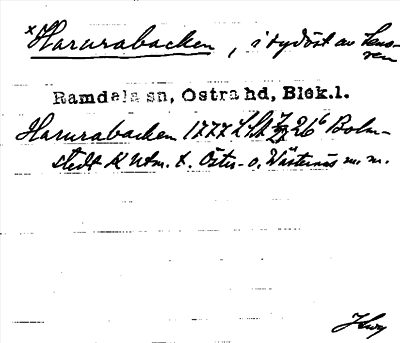 ×Harurabacken, i sydöst av Sens-
ren
Ramdala sn, Östra hd, Blek.l.
Harurabacken 1777 LSA 26⁶ Bolm-
stedt K Utm. t. Öster- o. Västernäs m.m.